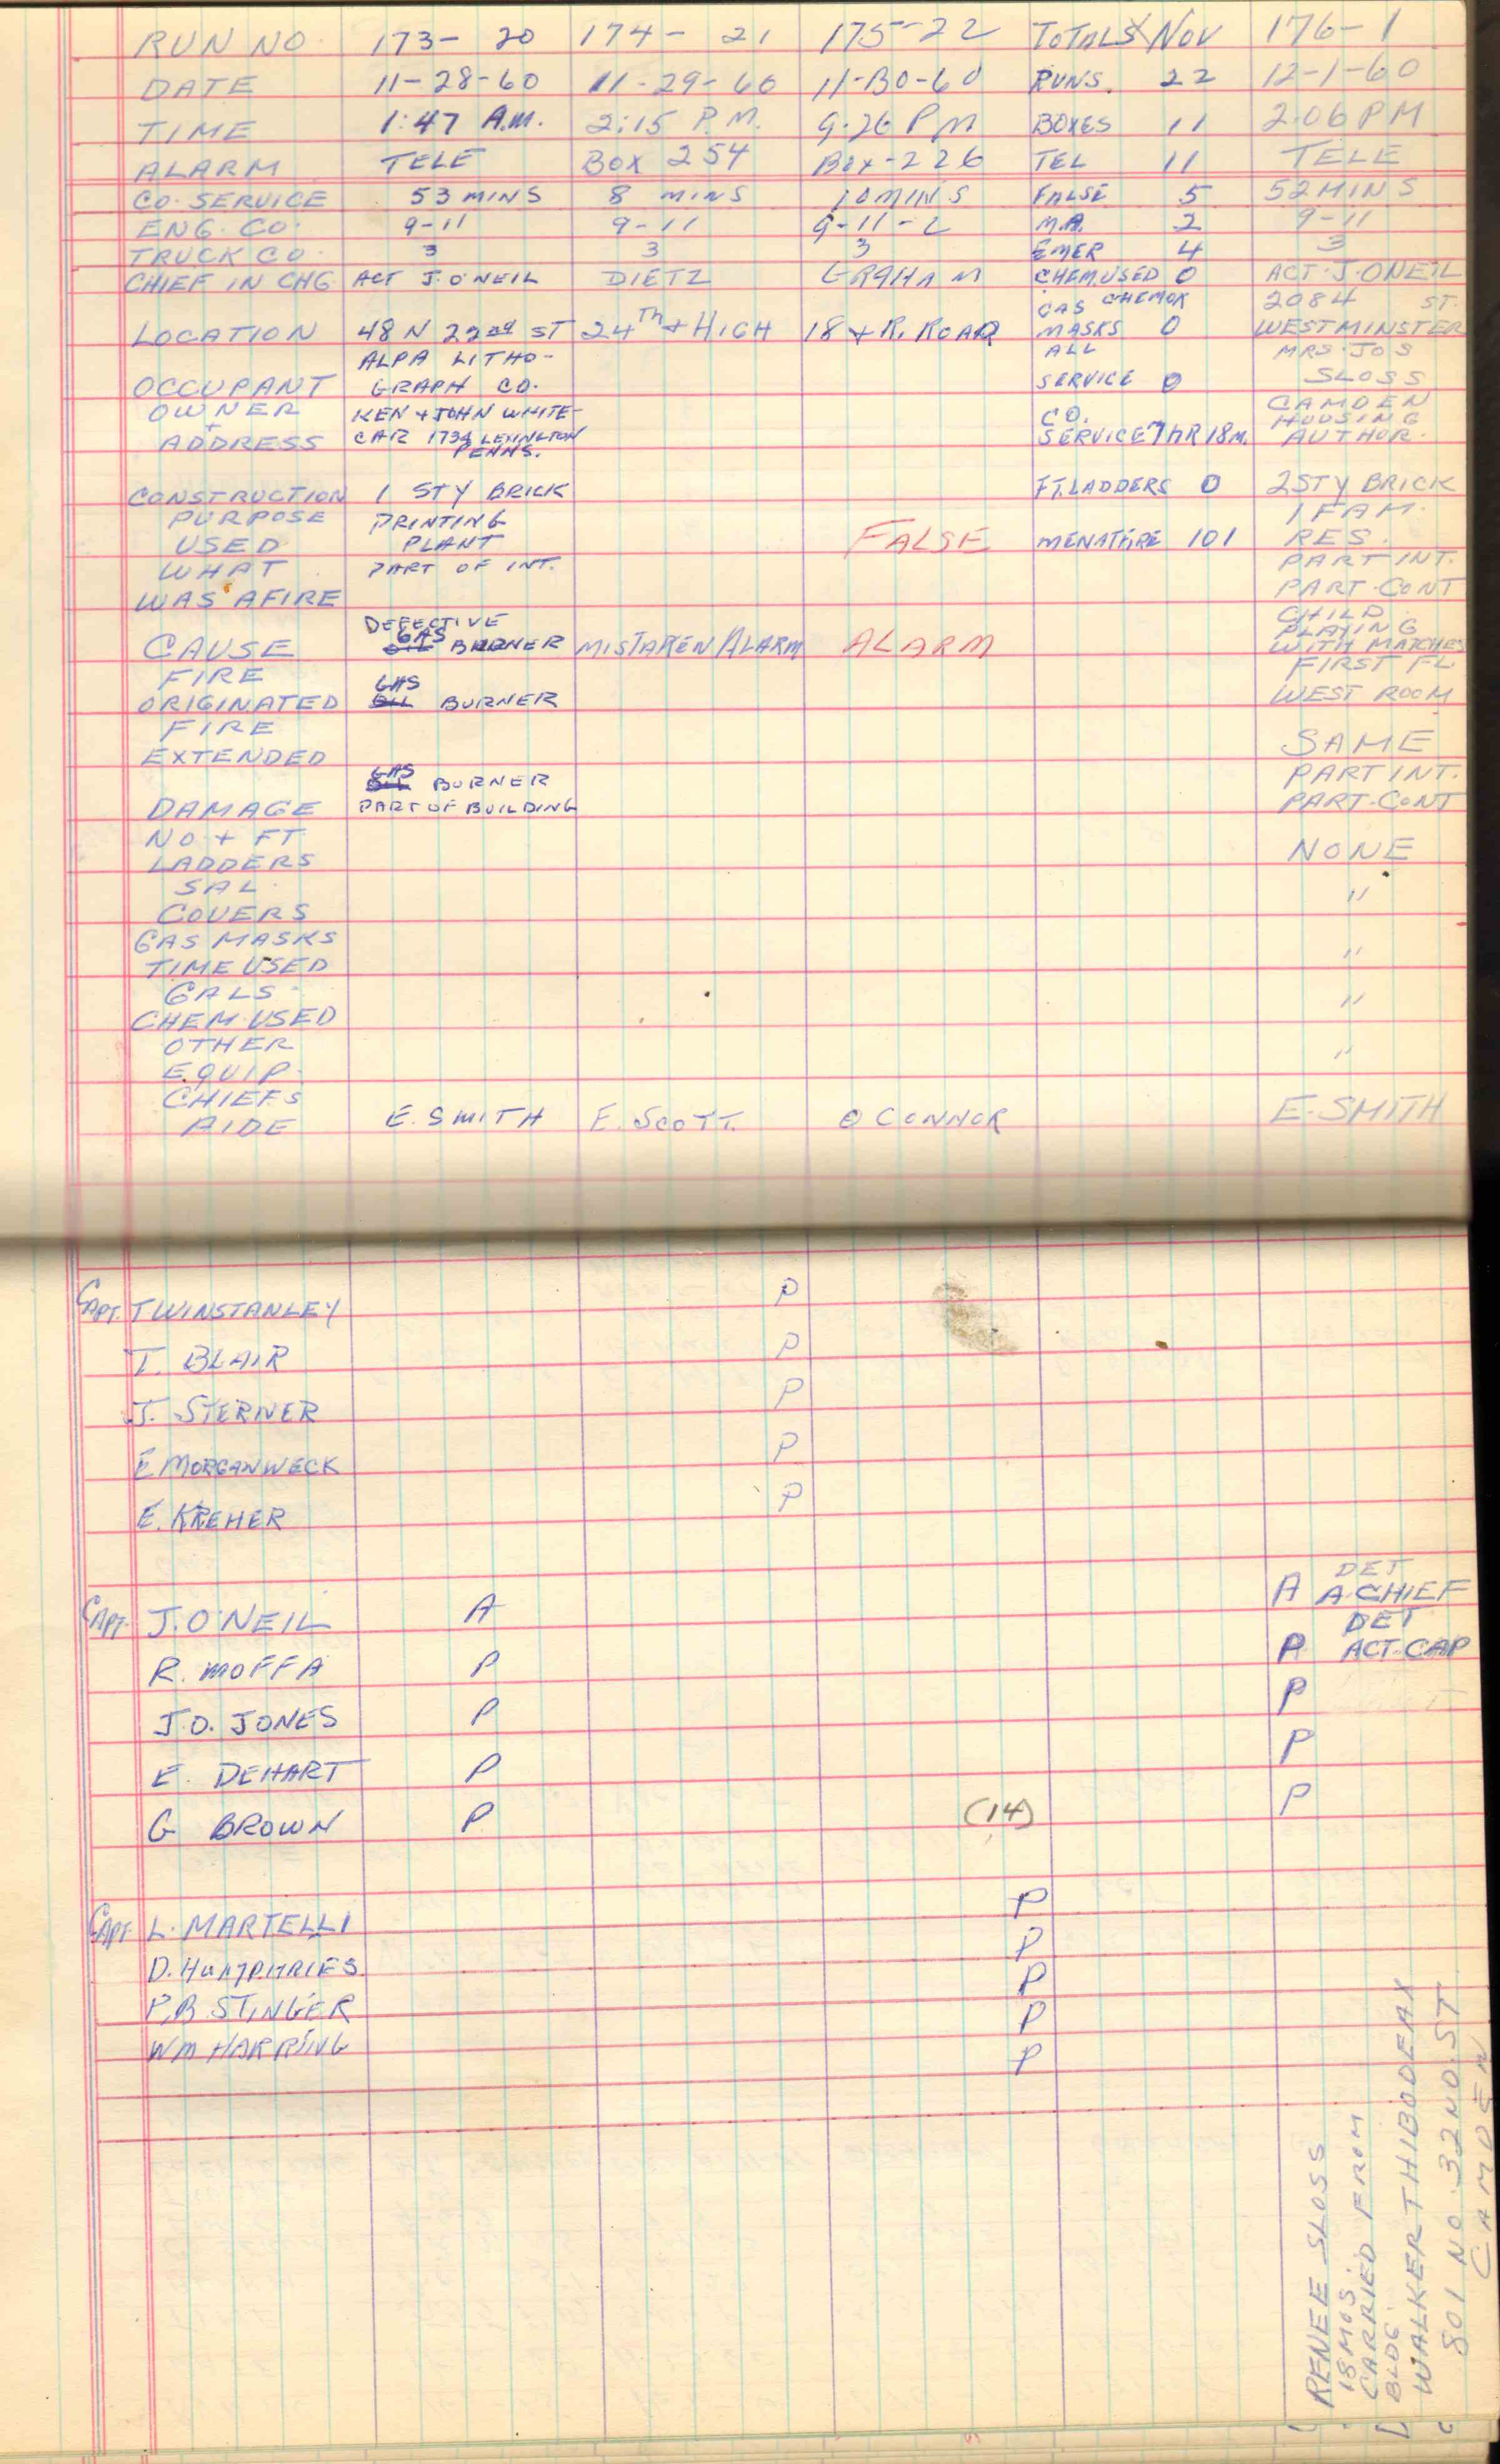 RUN NO. 173- 20 174- 21 175-22 TOTALS NOV 176-1
DATE 11-28-60 11-29-60 11-30-60 RUNS. 22 12-1-60
TIME 1:47 A.M. 2:15 P.M. 9.26 PM BOXES 11 2.06 PM
ALARM TELE BOX 254 BOX-226 TEL 11 TELE
CO. SERVICE 53 MINS 8 MINS 10 MINS FALSE 5 52 MINS
ENG. CO. 9-11 9-11 9-11-2 M.A. 2 9-11
TRUCK CO. 3 3 3 EMER 4 3
CHIEF IN CHG ACT J. O'NEIL DIETZ GRAHAM CHEM.USED 0 ACT. J. ONEIL
GAS CHEMOX 2084 ST.
LOCATION 48 N 22nd ST 24TH + HIGH 18 + R. ROAD MASKS 0 WESTMINSTER
ALPA LITHO- ALL MRS. JOS
OCCUPANT GRAPH CO. SERVICE 0 SLOSS
OWNER KEN + JOHN WHITE- CO. CAMDEN HOUSING
+
ADDRESS CAR 1734 LEXINGTON SERVICE 7 HR 18 M. AUTHOR.
PENNS.
CONSTRUCTION 1 STY BRICK FT. LADDERS 0 2 STY BRICK
PURPOSE PRINTING 1 FAM.
USED PLANT FALSE MEN AT FIRE 101 RES.
WHAT PART OF INT. PART INT.
WAS AFIRE PART. CONT
DEFECTIVE CHILD
GAS PLAYING
CAUSE OIL BURNER MISTAKEN ALARM ALARM WITH MATCHES
FIRE GAS FIRST FL
ORIGINATED OIL BURNER WEST ROOM
FIRE
EXTENDED SAME
GAS
OIL BURNER PART INT.
DAMAGE PART OF BUILDING PART. CONT
NO. + FT.
LADDERS NONE
SAL.
COVERS "
GAS MASKS
TIME USED "
GALS.
CHEM. USED "
OTHER
EQUIP. "
CHIEFS
AIDE E. SMITH E. SCOTT. O CONNOR E. SMITH
CAPT. T WINSTANLEY P
T. BLAIR P
J. STERNER P
E MORGANWECK P
E. KREHER P
DET
CAPT. J. O'NEIL A A A. CHIEF
DET
R. MOFFA P P ACT. CAP
J.O. JONES P P
E. DEHART P P
G BROWN P (14) P
CAPT. L. MARTELLI P
D. HUMPHRIES P
P.B. STINGER P
WM HARRING P
P
RENEE SLOSS
18 MOS.
CARRIED FROM
BLDG.
WALKER THIBODEAX
801 NO. 32ND. ST
CAMDEN